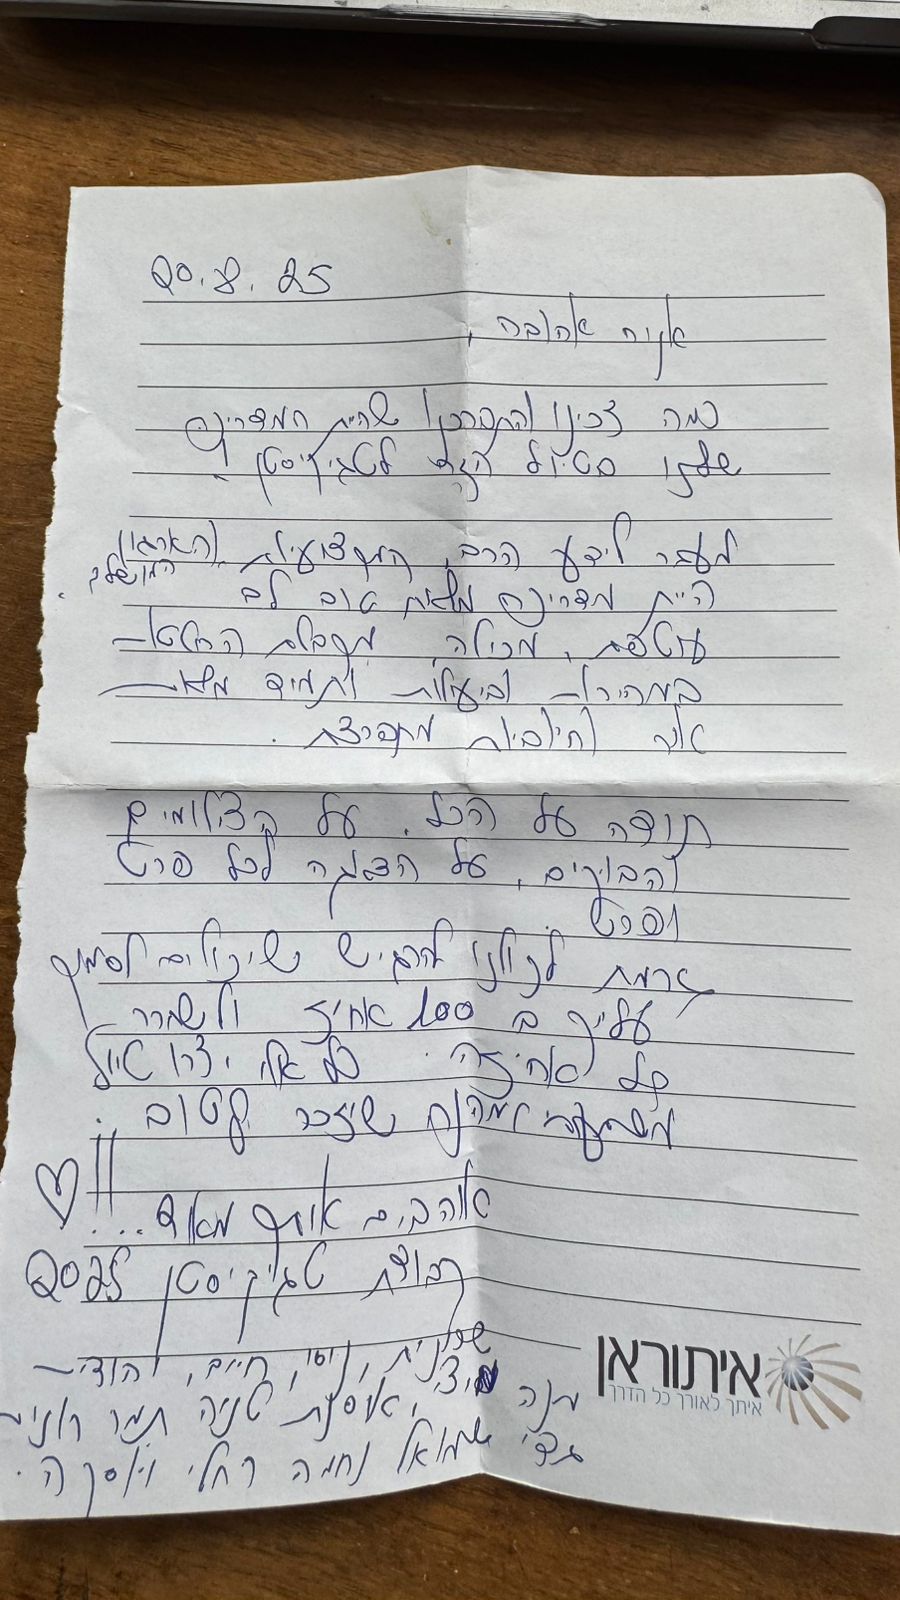 20.8.25
אהובה,
כמה זכינו והתברכנו שהיית המדריכה
שלנו בטיול הזה לטג'יקיסטן
מעבר לידע הרב, המקצועיות (הארגון
המושלם.
היית מדריכה מלאת טוב לב
עוטפת, מכילה, מקבלת החלטות
במהירות וביעילות ותמיד מלאת
וחילביות מתפרצת.
תודה על הכל. על הצילומים
והבוקרים, על הדאגה לכל פרט
ופרט.
גרמת לכולנו להרגיש שיכולים לסמוך
עלייך ב 100 אחוז ולשמר
כל כל אלו יצרו טיול
משמעותי ומהנה שיזכר לטוב.
אוהבים אותך מאוד...!!
קבוצת טג'יקיסטן 2025
שולמית, ניסי, חיים, יהודית
מנה אוסנת טניה תמר רונית
גדי שמואל נחמה רחלי ויוסקה.
איתוראן
איתך לאורך כל הדרך